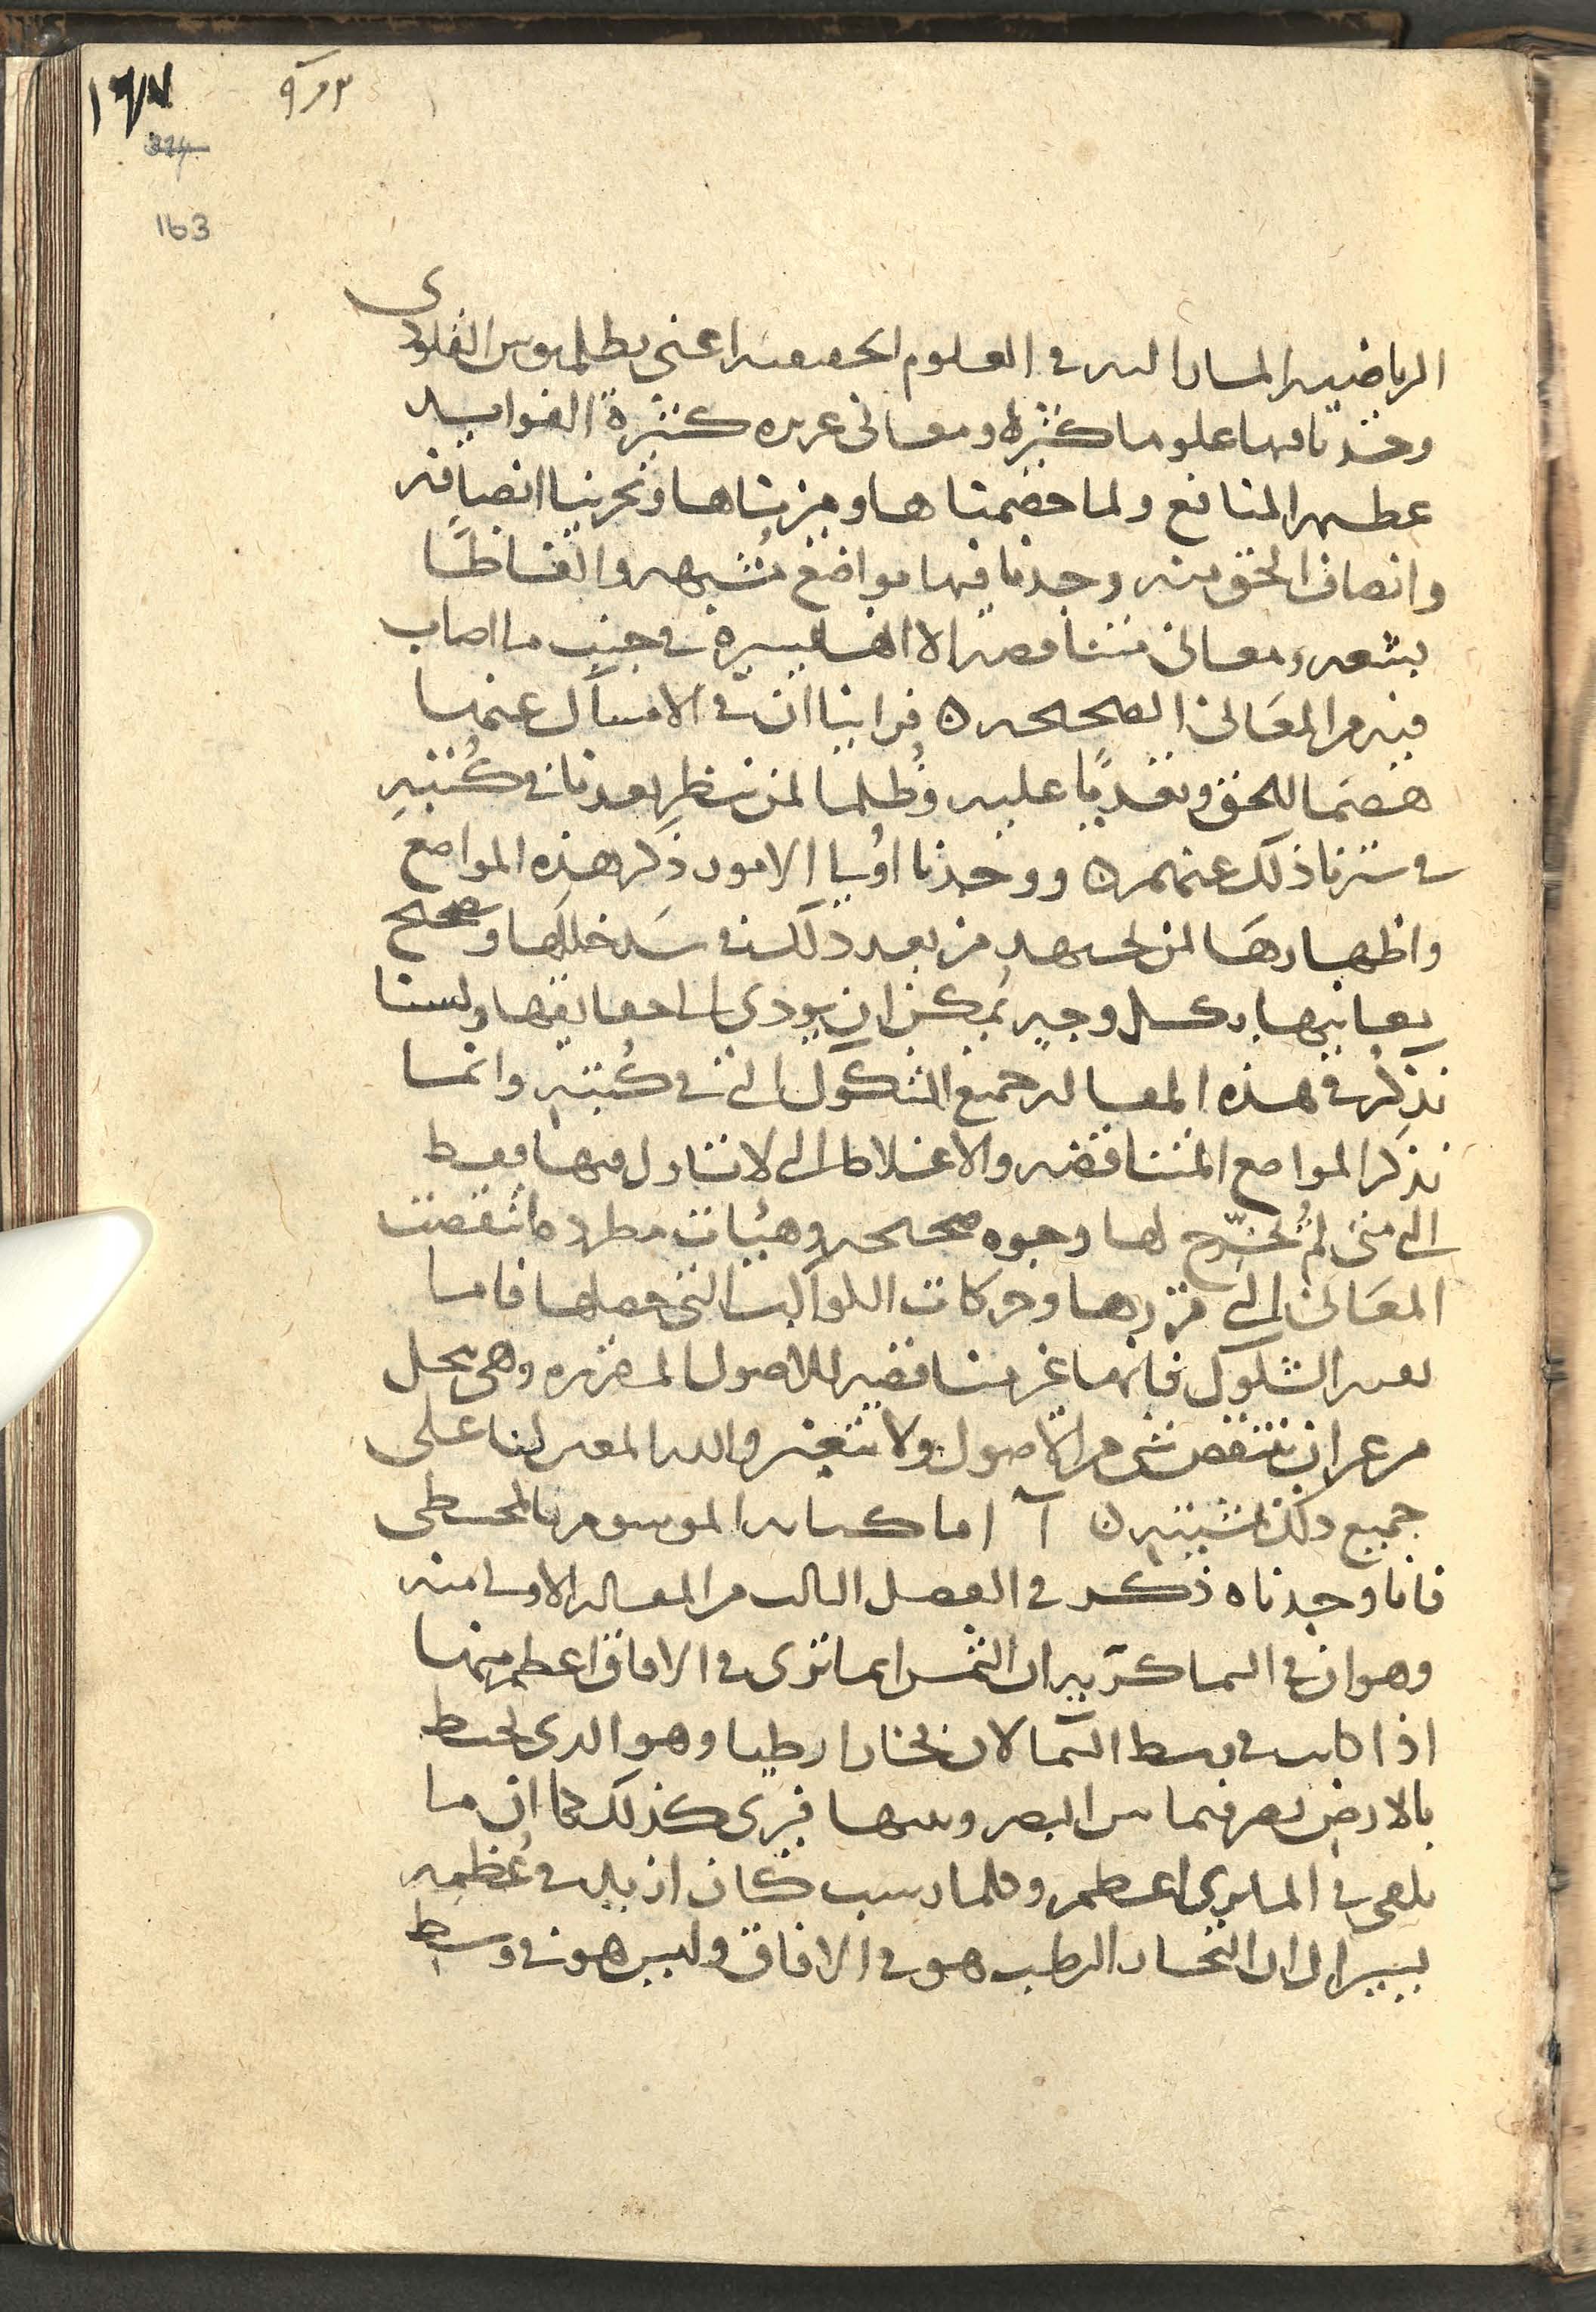 ١٦٧
324
163
الرياضية المشار اليه في العلوم الحقيقية اعني بطلميوس القلوذى
وجدنا فيها علوما كثيرة ومعاني غزيرة كثيرة الفوايد
عظيمة المنافع ولما خصمناها وميزناها وتحرينا انصافه
وانصاف الحق منه وجدنا فيها مواضع مشبهة والفاظًا
بشعة ومعاني متناقضة الا انها يسيرة في جنب ما اصاب
فيه من المعاني الصحيحة ه فراينا ان في الامساك عنها
هضما للحق وتعديًا عليه وظلما لمن ينظر بعدنا في كتبه
في سترنا ذلك عنهم ه ووجدنا اولى الامور ذكر هذه المواضع
واظهارها لمن يجتهد من بعد ذلك في سد خللها وتصحيح
معانيها بكل وجه يمكن ان يودي الى حقايقها ولسنا
نذكر في هذه المقالة جميع الشكوك التي في كتبه وانما
نذكر المواضع المتناقضة والاغلاط التي لا تتاول فيها فقط
التي متى لم يُخرّج لها وجوه صحيحة وهيئات مطردة انتقضت
المعاني التي قررها وحركات الكواكب التي حصلها فاما
بقية الشكوك فانها غير مناقضة للاصول المقررة وهي تنحل
من غير ان ينتقض شي من الاصول ولا يتغير والله المعين لنا على
جميع ذلك بمشيته ه آ اما كتابه الموسوم بالمجسطى
فانا وجدناه ذكر في الفصل الثالث من المقالة الاولى منه
وهو ان في السما كرية ان الشمس انما ترى في الافاق اعظم منها
اذا كانت في وسط السما لان بخارا رطبا وهو الذي يحيط
بالارض يصير فيما بين البصر وبينها فيرى كذلك كما ان ما
يلقى في الما يرى اعظم وكلما رسب كان ازيد في عُظمه
يشير الى ان البخار الرطب هو في الافاق وليس هو في وسط